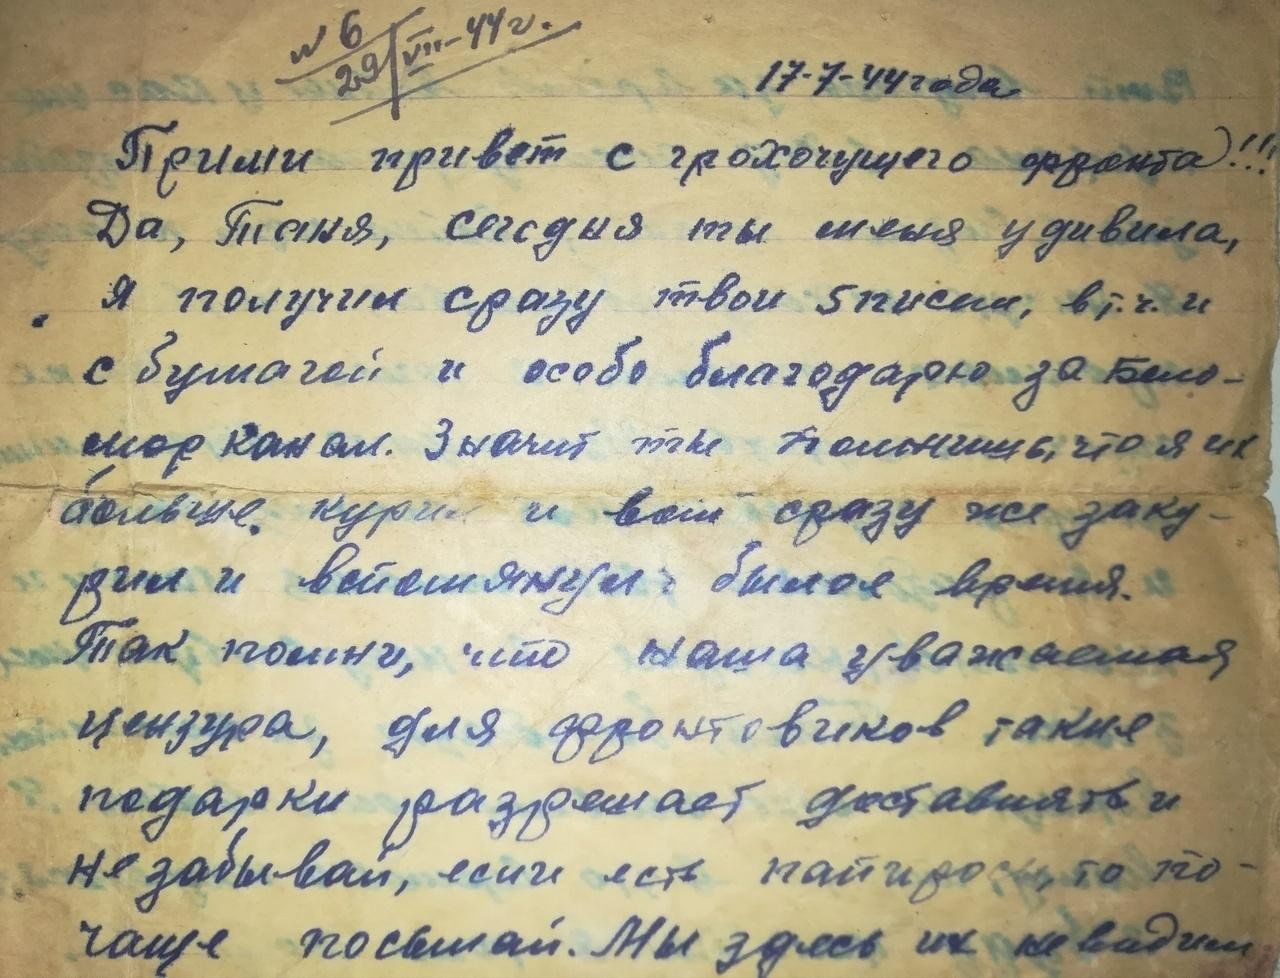 № 6
29/VII-44 г.
17-7-44 года
Прими привет с грохочущего фронта!!!
Да, Таня, сегодня ты меня удивила,
я получил сразу твои 5 писем, в т.ч. и
с бумагой и особо благодарю за Бело-
мор канал. Значит ты помнишь, что я их
больше курил и вот сразу же заку-
рил и вспомянул былое время.
Так помни, что наша уважаемая
цензура, для фронтовиков такие
подарки разрешает доставлять и
не забывай, если есть папиросы, то по-
чаще посылай. Мы здесь их не видим